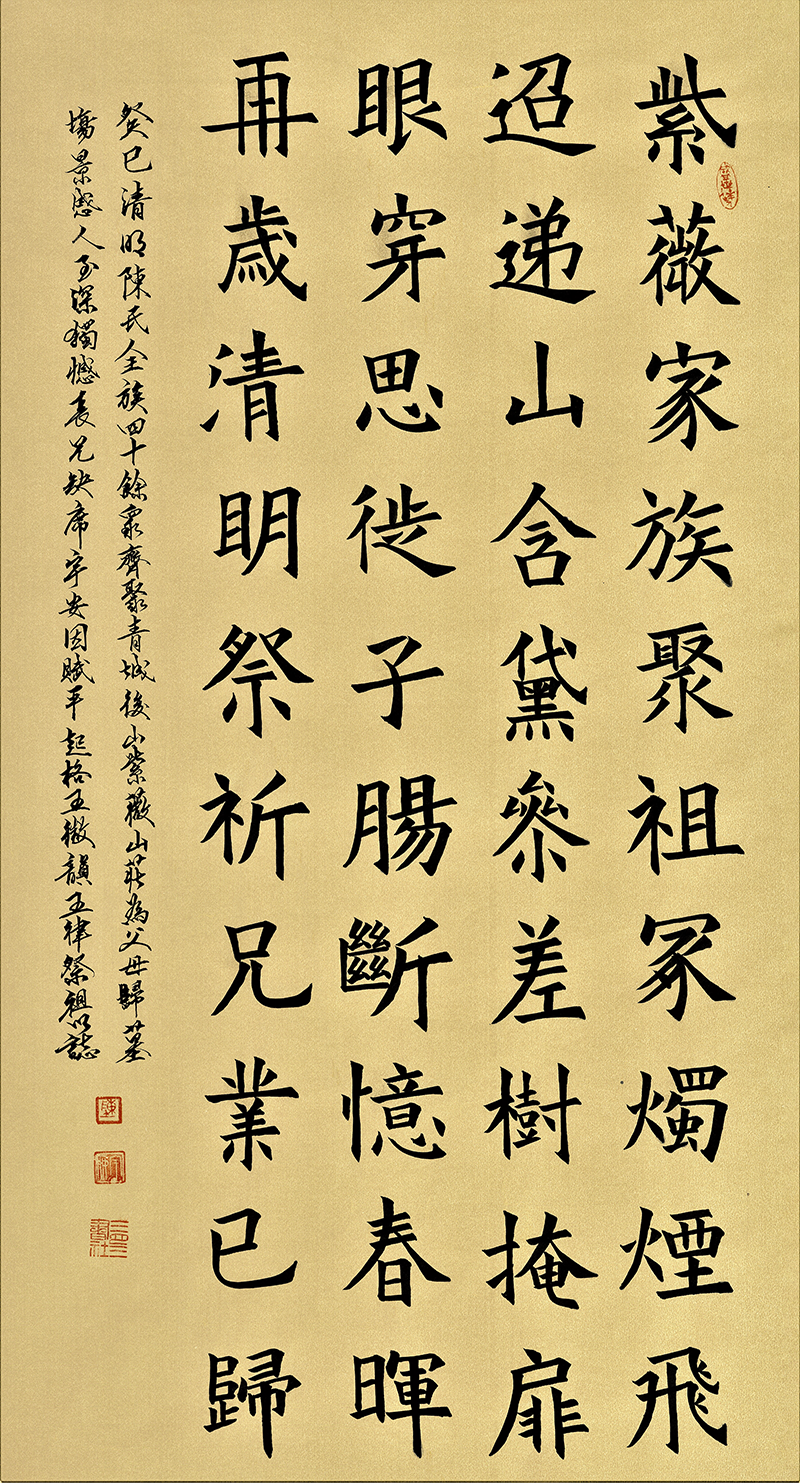 紫薇家族聚祖冢燭煙飛
迢递山含黛參差樹掩扉
眼穿思徙子腸斷憶春暉
再歲清明祭祈兄業已歸
癸巳清明陳氏全族四十餘衆齊聚青城後山紫薇山莊為父母歸墓
場景感人至深獨憾長兄缺席宇安因賦平起格五微韻五律祭祖以誌
陳